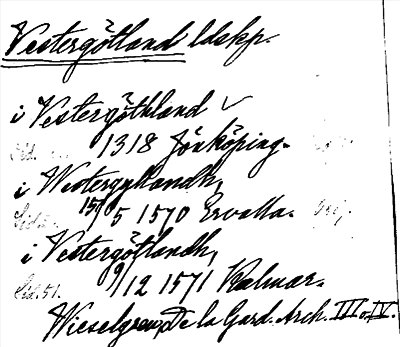 Vestergötland ldskp.
i Vestergöthland ✓
1318 Jönköping.
i Westergyllandh,
15/5 1570 Ervalla.
i Vestergötlandh,
Sid. 51. 9/12 1571 Kalmar.
Wieselgren, De la Gard. Arch. III o. IV.